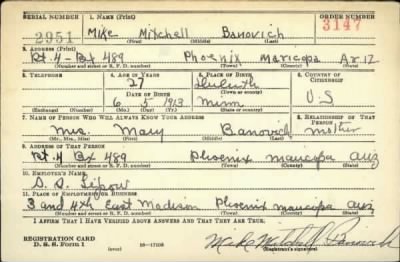 SERIAL NUMBER 1. NAME (Print) ORDER NUMBER
2951 Mike Mitchell Banovich 3147
(First) (Middle) (Last)
2. ADDRESS (Print)
Rt. 4 - Bx 489 Phoenix Maricopa Ariz
(Number and street or R. F. D. number) (Town) (County) (State)
3. TELEPHONE 4. AGE IN YEARS 5. PLACE OF BIRTH 6. COUNTRY OF CITIZENSHIP
27 Duluth
DATE OF BIRTH (Town or county)
6 5 1913 Minn U S
(Exchange) (Number) (Mo.) (Day) (Yr.) (State or country)
7. NAME OF PERSON WHO WILL ALWAYS KNOW YOUR ADDRESS 8. RELATIONSHIP OF THAT PERSON
Mrs. Mary Banovich mother
(Mr., Mrs., Miss) (First) (Middle) (Last)
9. ADDRESS OF THAT PERSON
Rt. 4 Bx 489 Phoenix maricopa Ariz
(Number and street or R. F. D. number) (Town) (County) (State)
10. EMPLOYER'S NAME
11. PLACE OF EMPLOYMENT OR BUSINESS
3 and 4th East Madison Phoenix maricopa Ariz
(Number and street or R. F. D. number) (Town) (County) (State)
I AFFIRM THAT I HAVE VERIFIED ABOVE ANSWERS AND THAT THEY ARE TRUE.
REGISTRATION CARD
D. S. S. Form 1 (over) 16—17105 Mike Mitchell Banovich
(Registrant's signature)